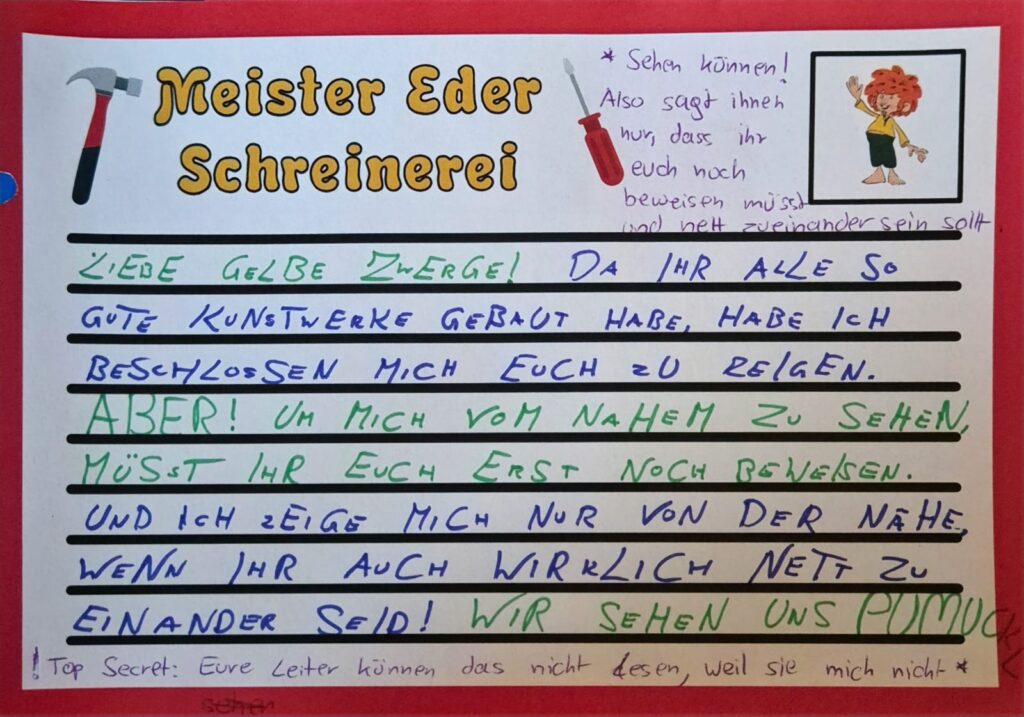 Meister Eder
Schreinerei
* Sehen können!
Also sagt ihnen
nur, dass ihr
euch noch
beweisen müsst
und nett zueinander sein sollt
LIEBE GELBE ZWERGE! DA IHR ALLE SO
GUTE KUNSTWERKE GEBAUT HABE, HABE ICH
BESCHLOSSEN MICH EUCH ZU ZEIGEN.
ABER! UM MICH VOM NAHEM ZU SEHEN,
MÜSST IHR EUCH ERST NOCH BEWEISEN.
UND ICH ZEIGE MICH NUR VON DER NÄHE,
WENN IHR AUCH WIRKLICH NETT ZU
EINANDER SEID! WIR SEHEN UNS PUMUCKL
! Top Secret: Eure Leiter können das nicht lesen, weil sie mich nicht *
sehen